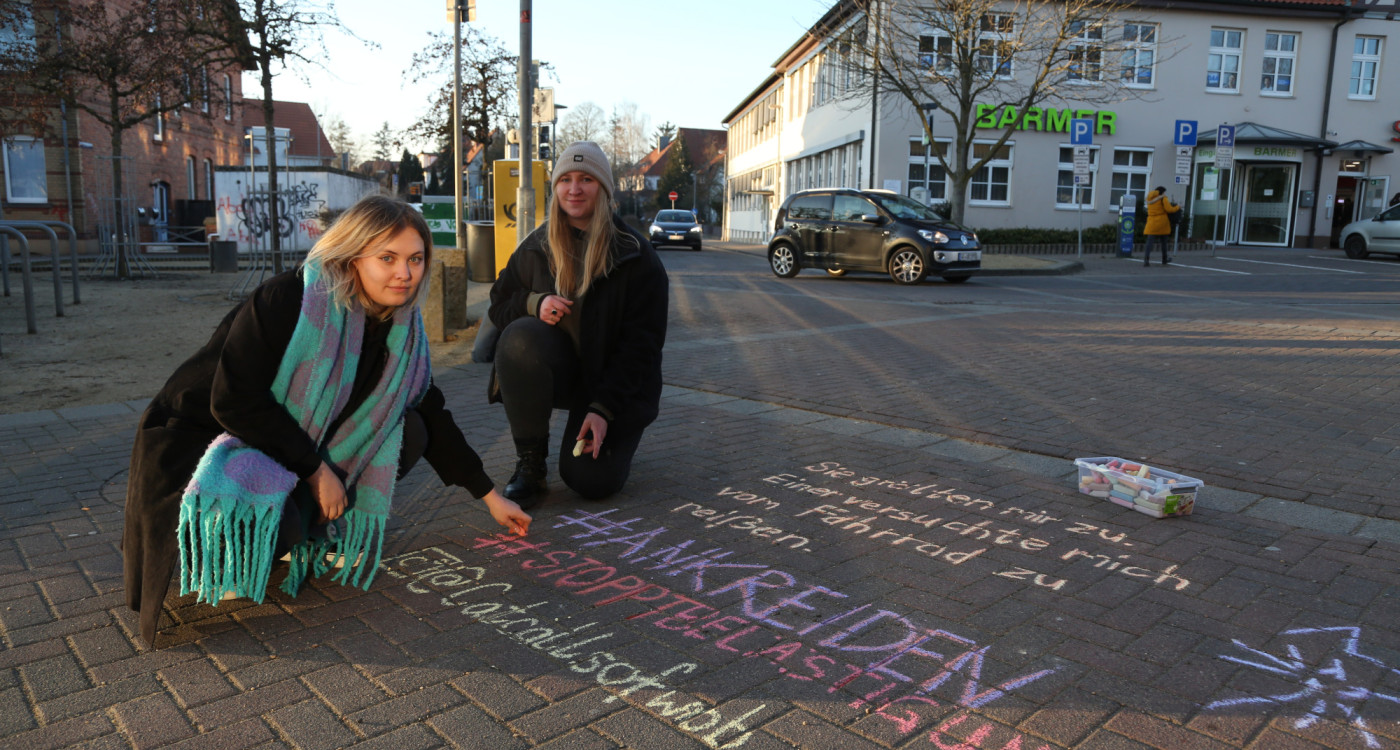 BARMER
P
P
P
BARMER
Sie gröllten mir zu.
Einer versuchte mich
vom Fahrrad zu
reißen-
#ANKREIDEN
#STOPPTBELÄSTIGUNG